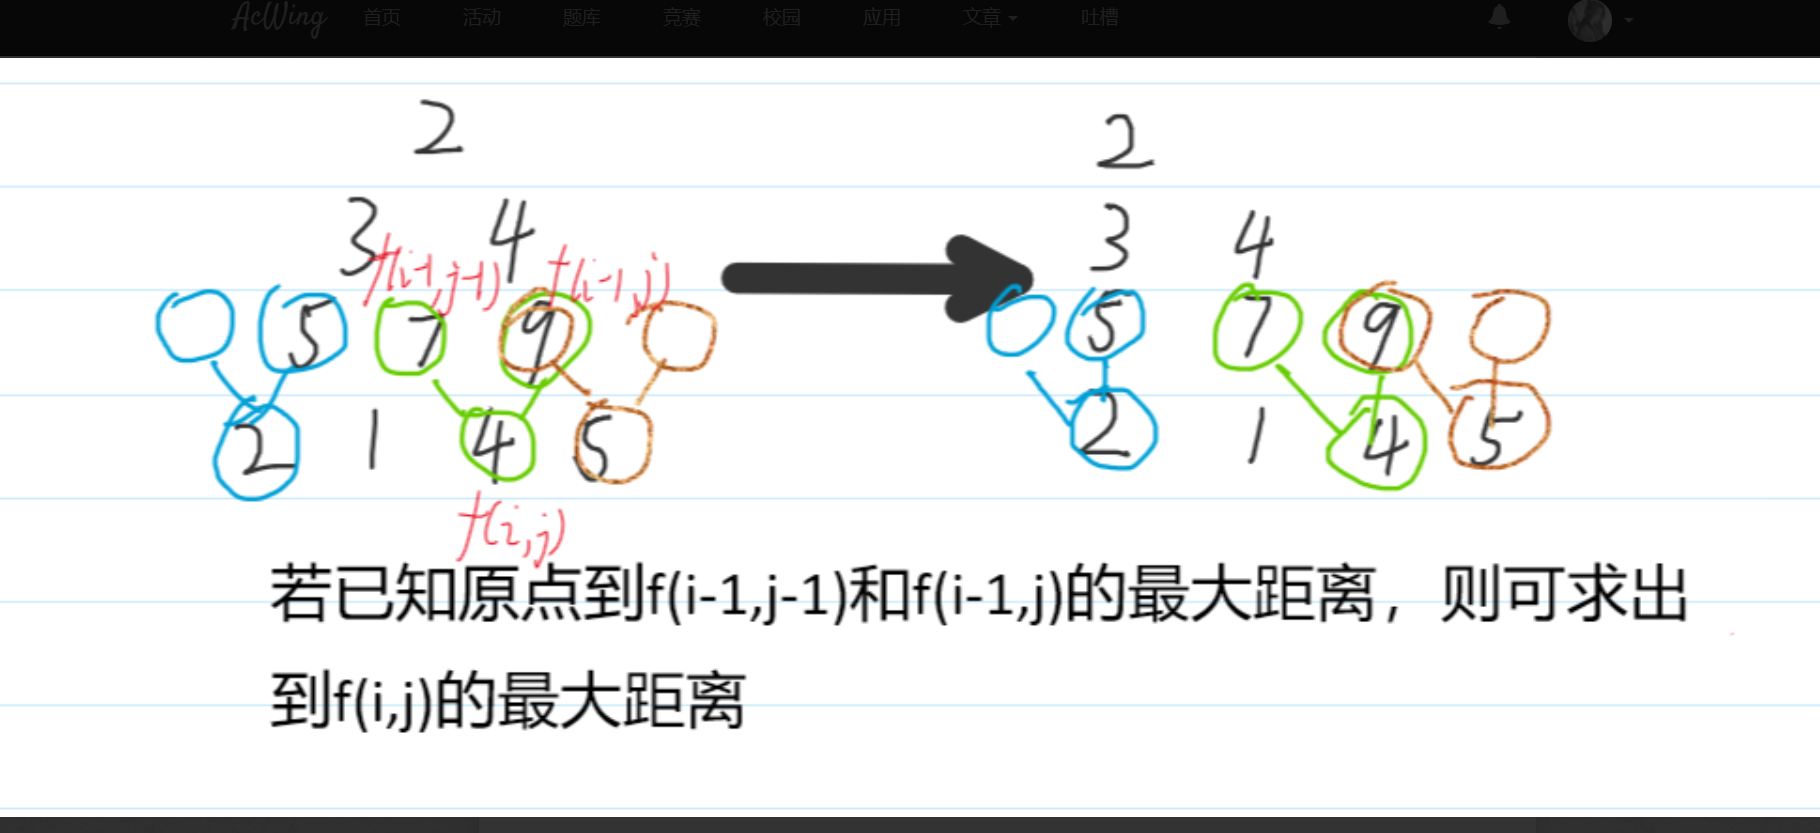 AcWing 首页 活动 题库 竞赛 校园 应用 文章 吐槽
2 2
3 4 3 4
f(i-1,j-1) f(i-1,j)
5 7 9 5 7 9
2 1 4 5 2 1 4 5
f(i,j)
若已知原点到f(i-1,j-1)和f(i-1,j)的最大距离，则可求出
到f(i,j)的最大距离